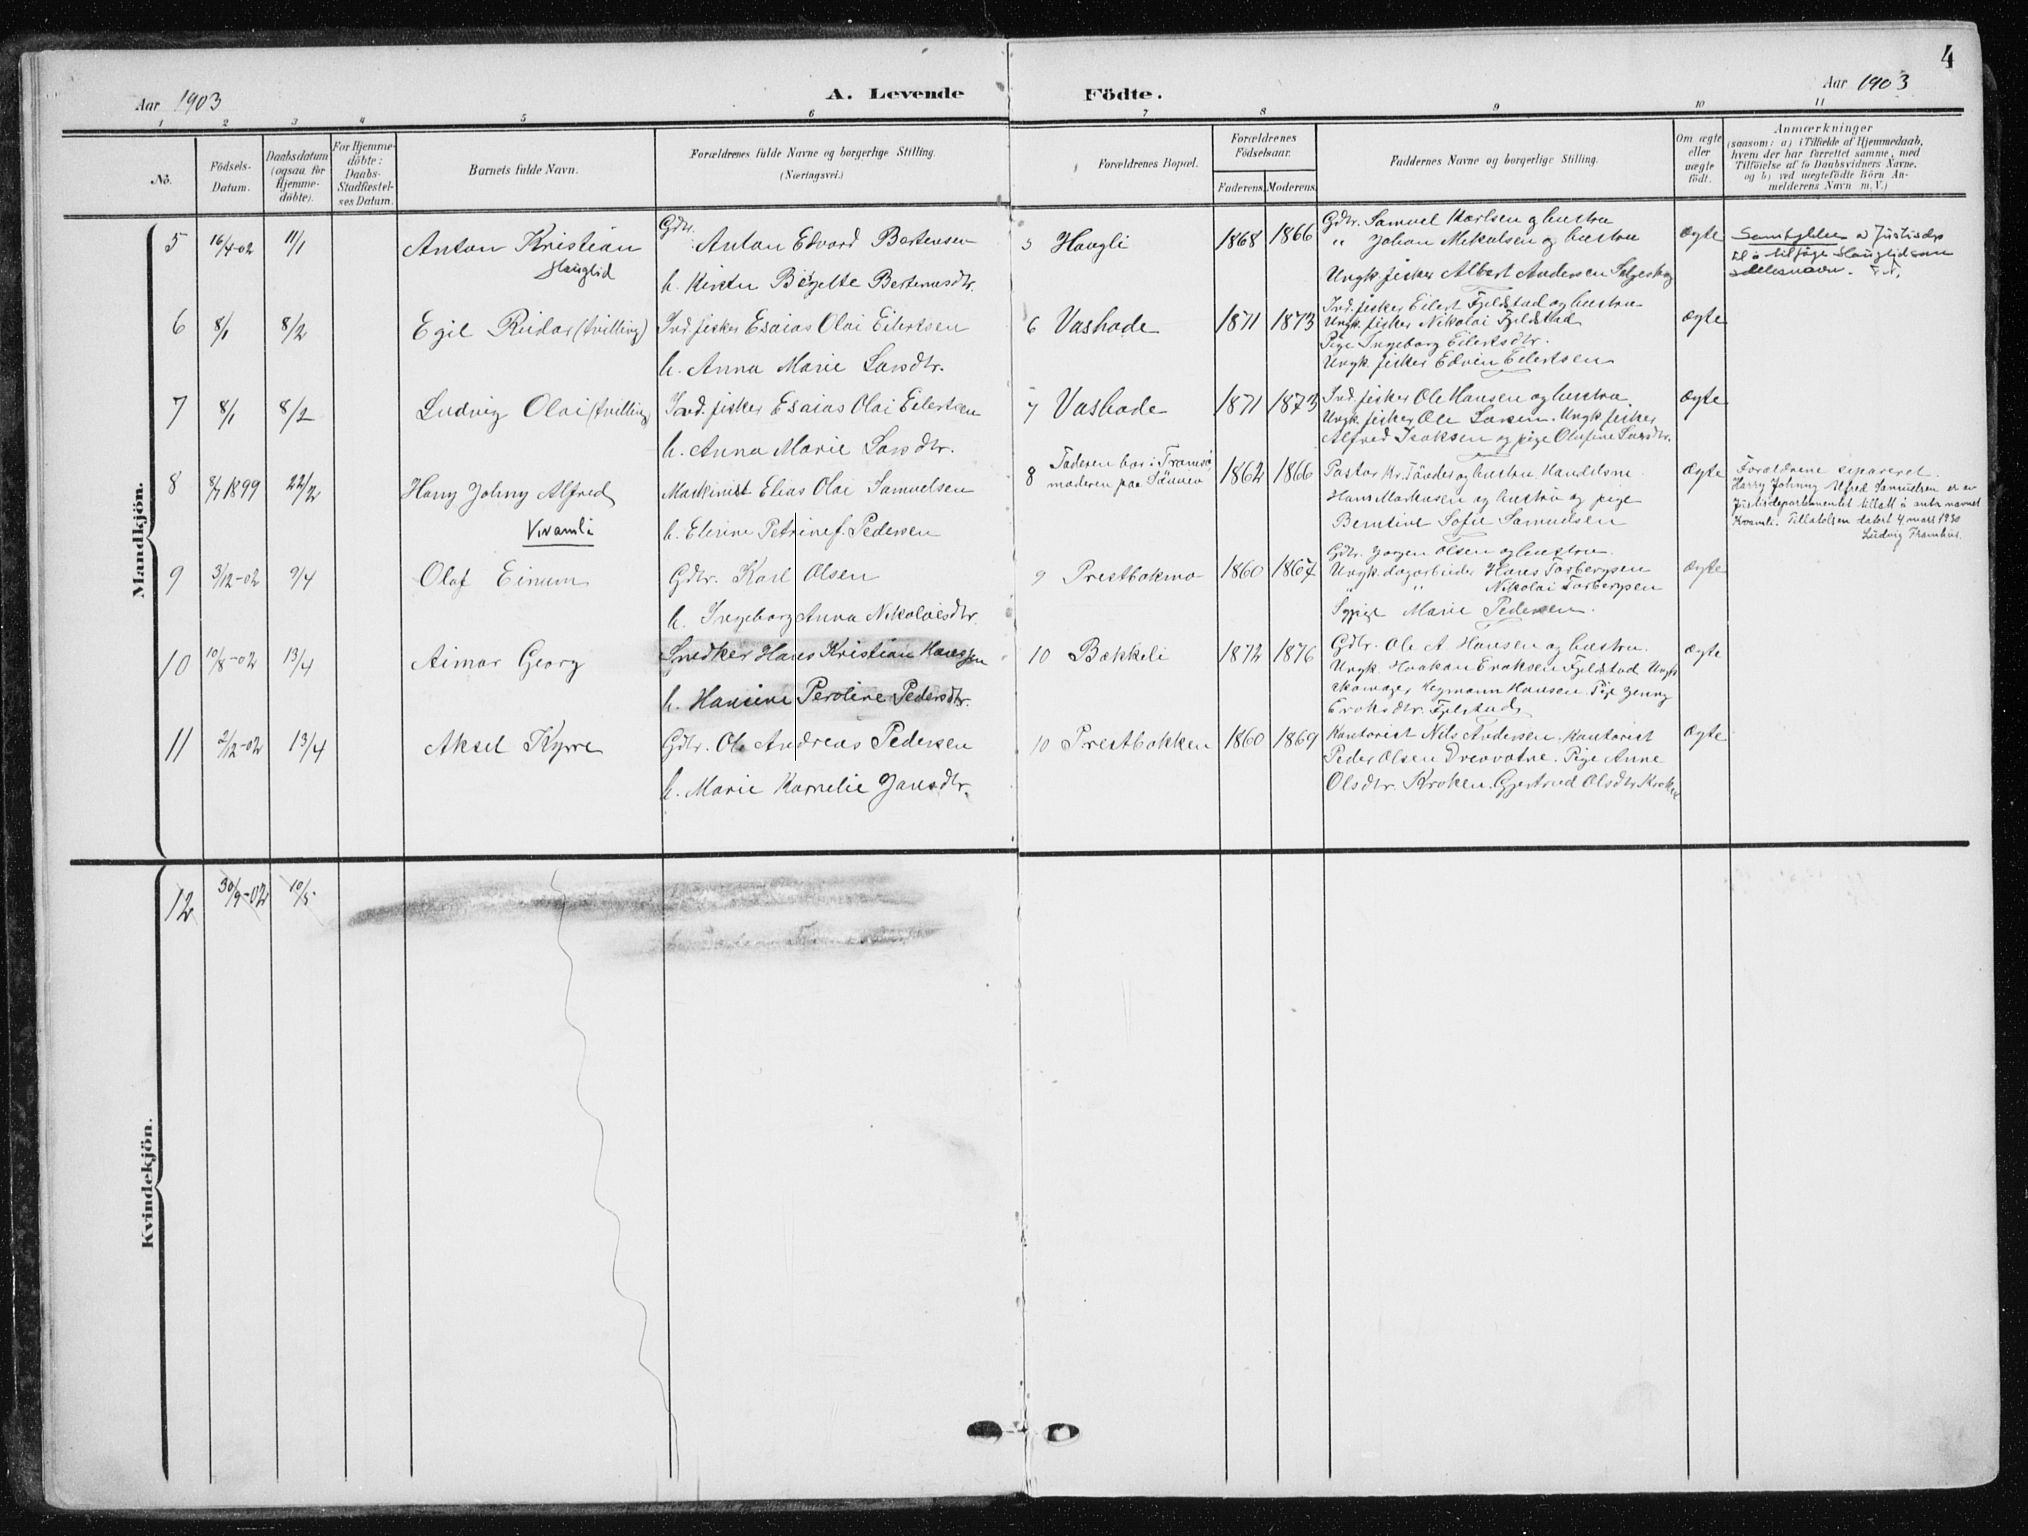 4
Aar 1903
A. Levende Födte.
Aar 1903
1 2 3 4 5 6 7 8 9 10 11
No.
Födsels-Datum.
Daabsdatum (ogsaa for Hjemme-döbte).
For Hjemme-döbte: Daabs-Stadfæstel-ses Datum.
Barnets fulde Navn.
Forældrenes fulde Navne og borgerlige Stilling.
(Næringsvei.)
Forældrenes Bopæl.
Forældrenes Födselsaar.
Faderens. Moderens.
Faddernes Navne og borgerlige Stilling.
Om ægte eller uægte födt.
Anmærkninger
(saasom: a) i Tilfælde af Hjemmedaab,
hvem der har forrettet samme, med
Tilföielse af to Daabsvidners Navne,
og b) ved uægtefödte Börn An-
melderens Navn m. V.)
Mandkjön.
5 16/4-02 11/1 Anton Kristian Gdbr. Anton Edvard Bertensen 5 Haugli 1868 1866 Gdbr. Samuel Karlsen og hustru ægte Samtykke
Hauglid h. Kirsten Birgitte " Johan Mikalsen og hustru til å tilføye Hauglid som
Ungk. fisker Albert Andersen
6 8/1 8/2 Egil Reidar (tvilling) Ind. fisker Esaias Olai Eilertsen 6 Vashode 1871 1873 Ind. fisker Eilert Fjeldstad og hustru ægte
h. Anna Marie Larsdtr. Ungk. fisker Nikolai Fjeldstad
Pige Ingeborg Eilertsdtr.
Ungk. fisker Edvin Eilertsen
7 8/1 8/2 Ludvig Olai (tvilling) Ind. fisker Esaias Olai Eilertsen 7 Vashode 1871 1873 Ind. fisker Ole Hansen og hustru ægte
h. Anna Marie Larsdtr. Ungk. fisker Ole Larsen. Ungk. fisker
Alfred Isaksen og pige Olufine Larsdtr.
8 8/7 1899 22/2 Harry Johny Alfred Maskinist Elias Olai Samuelsen 8 Faderen bor i Tromsö, 1862 1866 Pastor Kr. og hustru, Handelsm. ægte Forældrene separeret.
Kvamli h. Elerine Petrine f. Pedersen moderen paa Hans Markusen og hustru og pige Harry Johnny Alfred Samuelsen er av
Berntine Sofie Samuelsen Justisdepartementet tillatt å anta navnet
Kvamli. Tillatelsen datert 4 mars 1930
Ludvig
9 3/12-02 9/4 Olaf Einum Gdbr. Karl Olsen 9 Prestbakmo 1860 1867 Gdbr. Jørgen Olsen og hustru. ægte
h. Ingeborg Anna Nikolaisdtr. Ungk. dagarbeider Hans Torbergsen
" " Nikolai Torbergsen
Sypige Marie Pedersen.
10 10/8-02 13/4 Aimar Georg Snedker Hans Kristian Hanssen 10 Bakkeli 1872 1876 Gdbr. Ole A. Hansen og hustru. ægte
h. Hansine Peroline Pedersdtr. Ungk. Haakon Eraksen Fjeldstad Ungk
skomager Hegmann Hansen. Pige Jenny
Eraksdtr. Fjelstad
11 2/12-02 13/4 Aksel Kyrre Gdbr. Ole Andreas Pedersen 10 Prestbakken 1860 1869 Kontorist Nils Andersen, kontorist ægte
h. Marie Kornelie Jansdtr. Peder Olsen Drevvatne. Pige Anne
Olsdtr. Kroken. Gjertrud Olsdtr. Kroken
Kvindekjön.
12 30/9-02 10/5